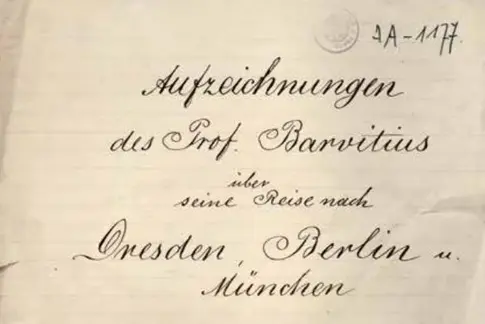 JA-1177.
Aufzeichnungen
des Prof. Barvitius
über
seine Reise nach
Dresden, Berlin u.
München